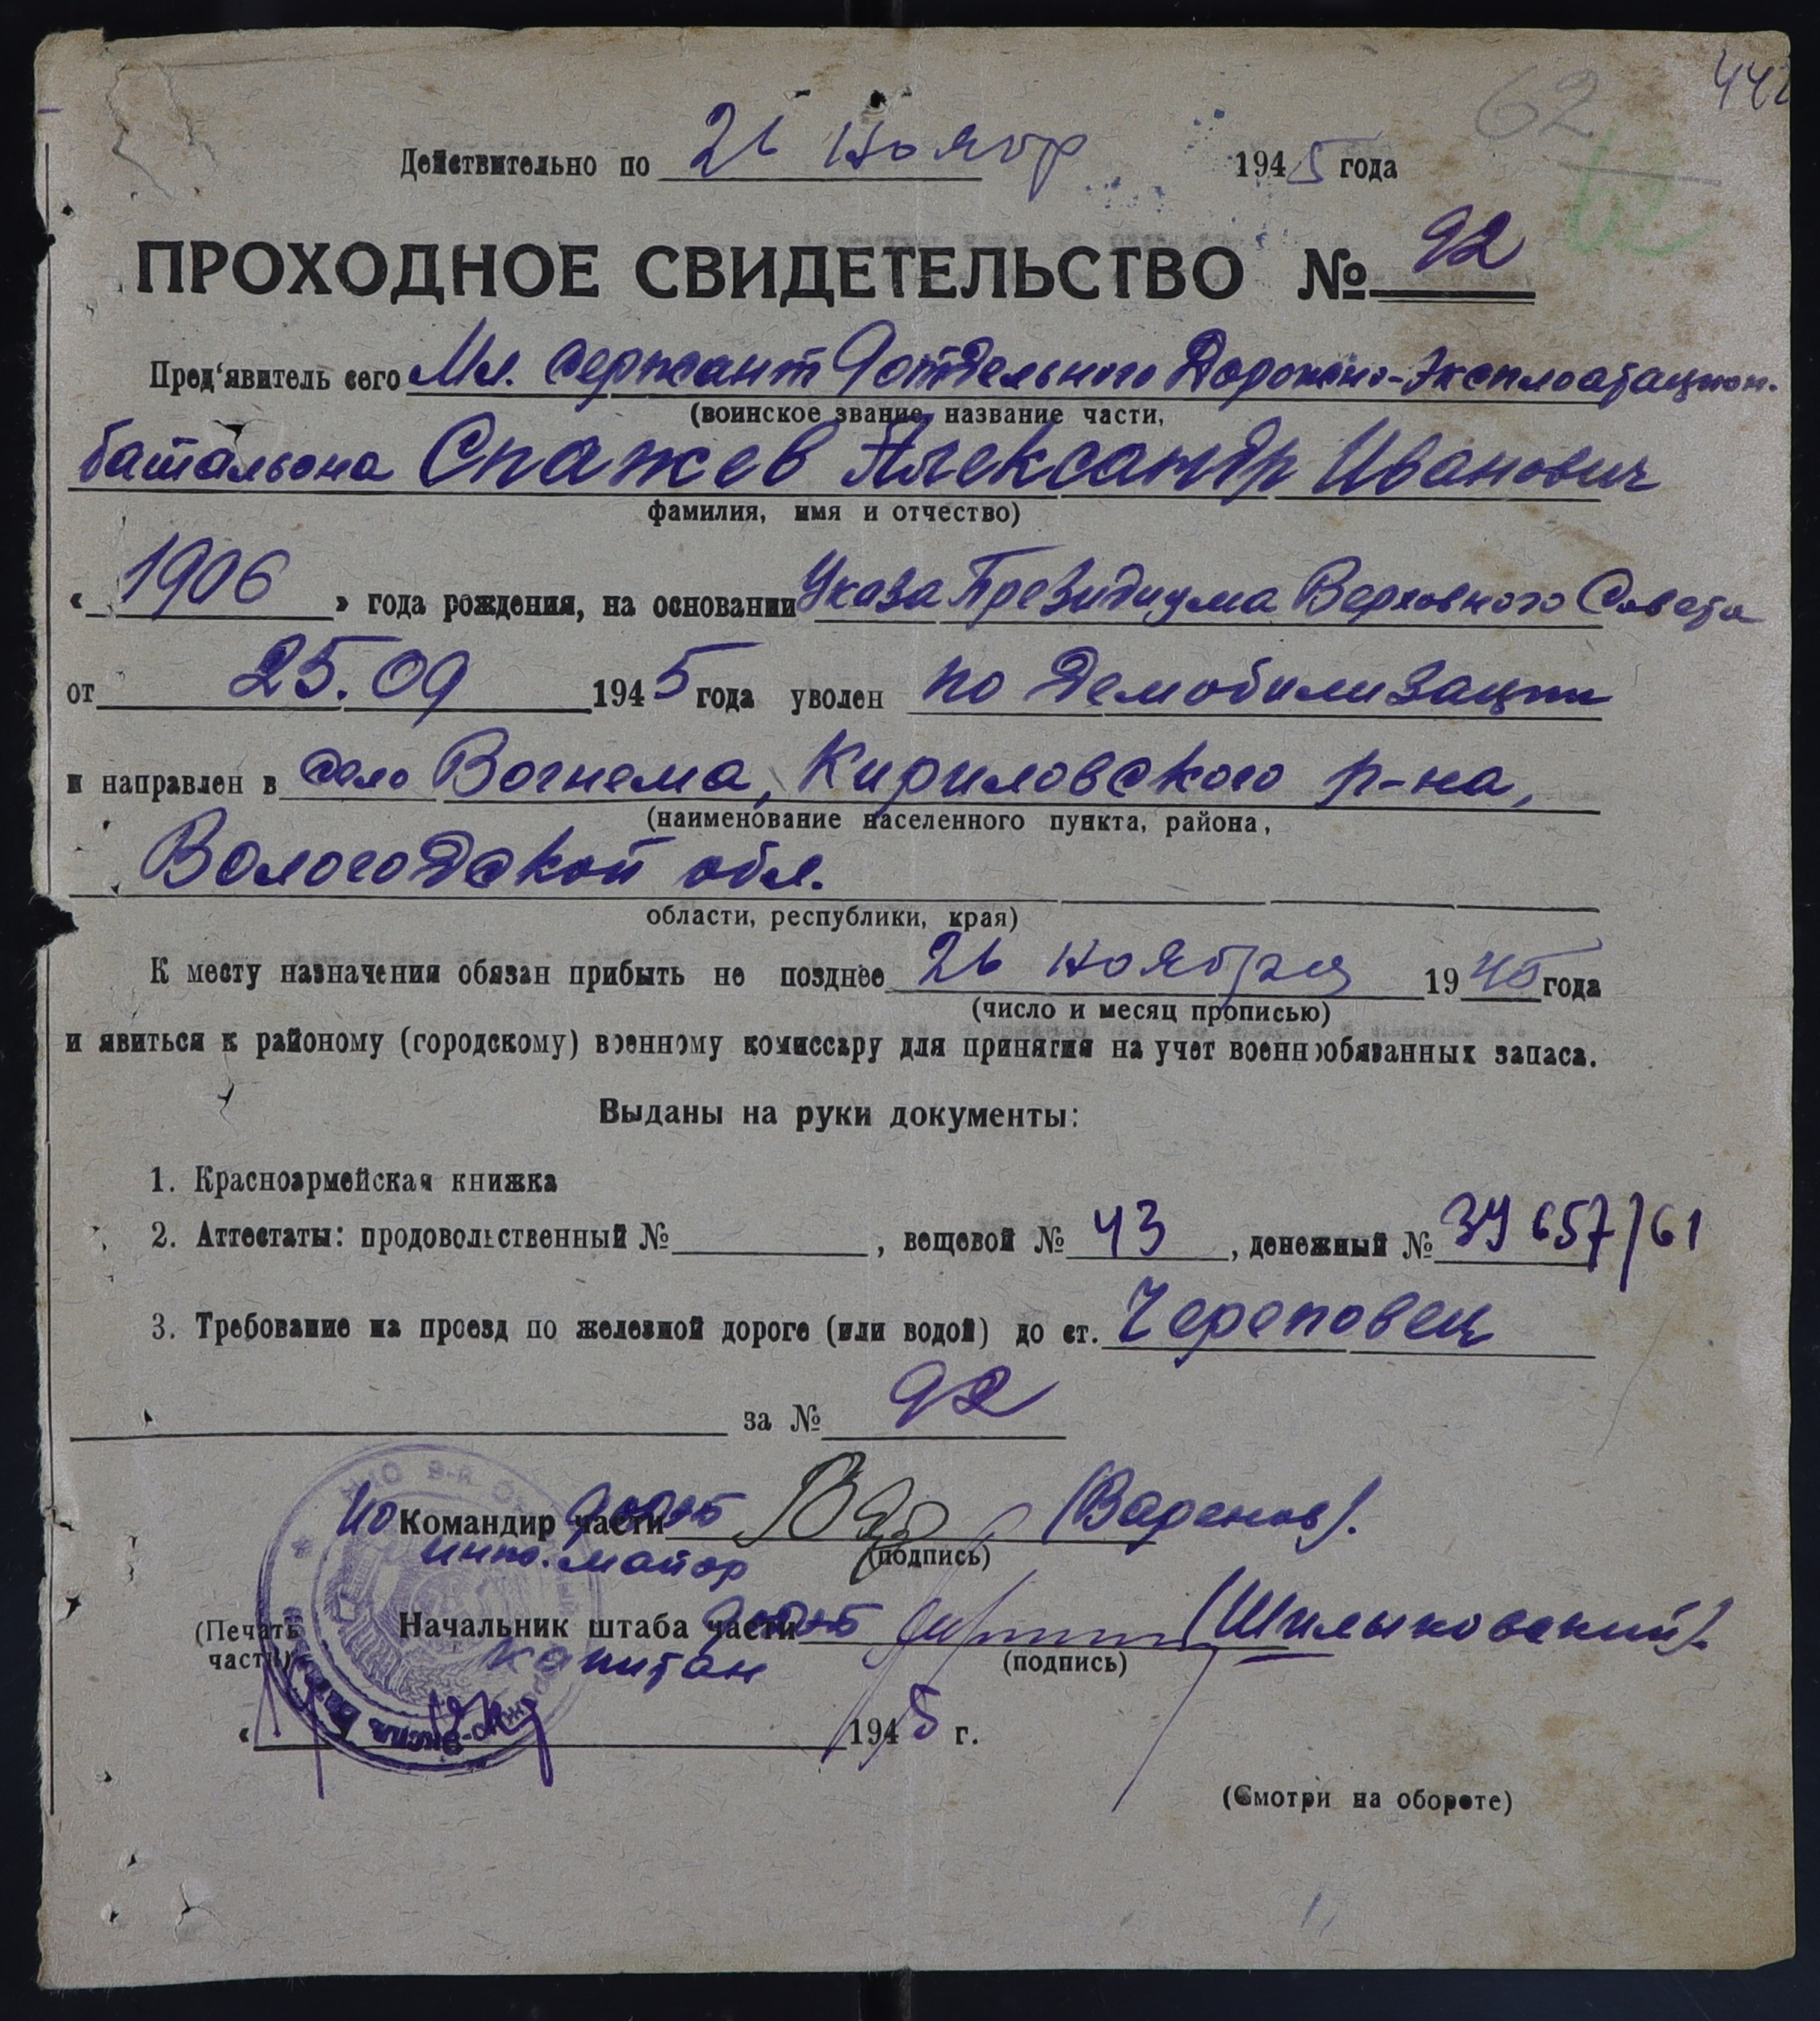 442
62
62
Действительно по 26 Ноябр 1945 года
ПРОХОДНОЕ СВИДЕТЕЛЬСТВО № 92
Пред'явитель сего Мл. сержант 9 отдельного Дорожно-Эксплоатацион.
(воинское звание, название части,
батальона Спажев Александр Иванович
фамилия, имя и отчество)
« 1906 » года рождения, на основании Указа Президиума Верховного Совета
от 25.09 1945 года уволен по демобилизации
и направлен в село Вогнема, Кириловского р-на,
(наименование населенного пункта, района,
Вологодской обл.
области, республики, края)
К месту назначения обязан прибыть не позднее 26 Ноября 1945 года
(число и месяц прописью)
и явиться к районому (городскому) военному комиссару для принятия на учет военнообязанных запаса.
Выданы на руки документы:
1. Красноармейская книжка
2. Аттестаты: продовольственный № , вещевой № 43 , денежный № 39657/61
3. Требование на проезд по железной дороге (или водой) до ст. Череповец
за № 92
ИО Командир части (Варенов).
инж. майор (подпись)
(Печать части) Начальник штаба части
капитан (подпись)
« 1945 г.
(Смотри на обороте)